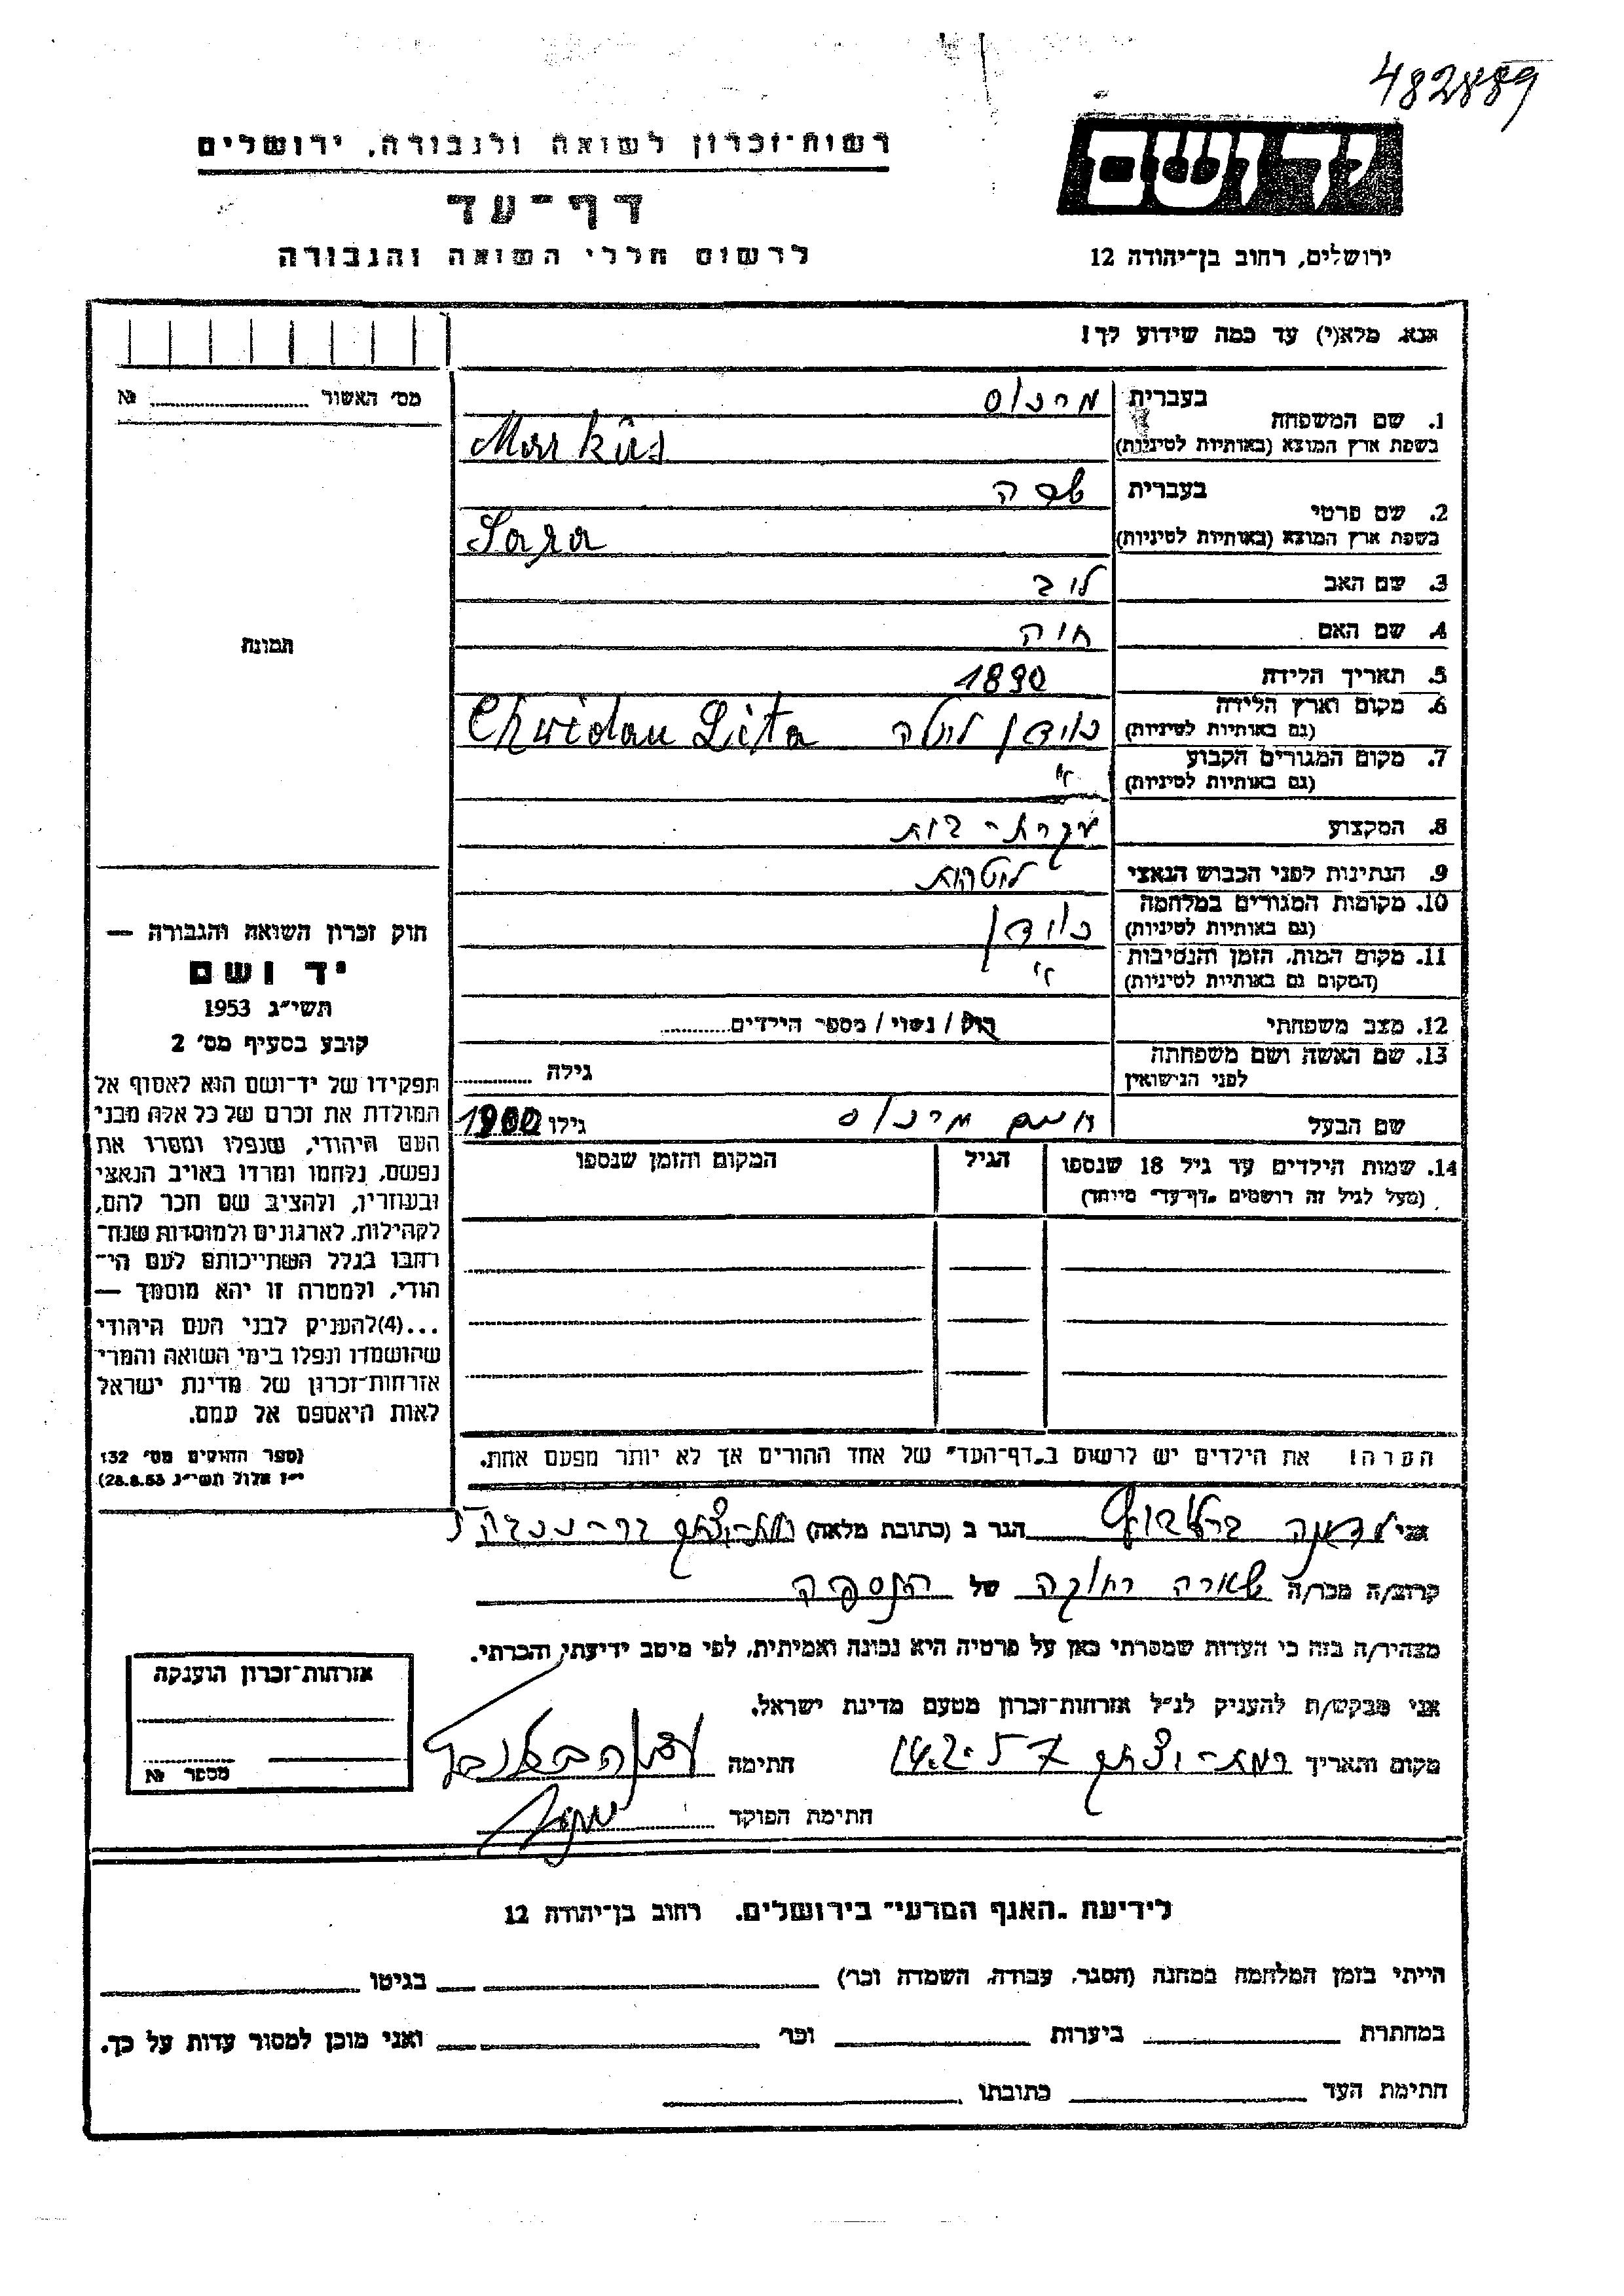 482889
רשות־זכרון לשואה ולגבורה, ירושלים
יד ושם
דף־עד
לרשום חללי השואה והגבורה
ירושלים, רחוב בן־יהודה 12
אנא, מלא(י) עד כמה שידוע לך!
מס׳ האשור № ........
1. שם המשפחה
בעברית מרכוס
בשפת ארץ המוצא (באותיות לטיניות) Markus
2. שם פרטי
בעברית שרה
בשפת ארץ המוצא (באותיות לטיניות) Sara
3. שם האב לוב
4. שם האם חיה
תמונה
5. תאריך הלידה 1890
6. מקום וארץ הלידה
(גם באותיות לטיניות) כוידן ליטה Chwidan Lita
7. מקום המגורים הקבוע
(גם באותיות לטיניות) "
8. המקצוע עקרת-בית
9. הנתינות לפני הכבוש הנאצי ליטאית
10. מקומות המגורים במלחמה
(גם באותיות לטיניות) כוידן
11. מקום המות, הזמן והנסיבות
(המקום גם באותיות לטיניות) "
12. מצב משפחתי רוק/נשוי/מספר הילדים........
13. שם האשה ושם משפחתה
לפני הנישואין גילה ........
שם הבעל מרכוס גילו 1900
14. שמות הילדים עד גיל 18 שנספו הגיל המקום והזמן שנספו
(מעל לגיל זה רושמים „דף־עד״ מיוחד)
חוק זכרון השואה והגבורה —
יד ושם
תשי״ג 1953
קובע בסעיף מס׳ 2
תפקידו של יד־ושם הוא לאסוף אל
המולדת את זכרם של כל אלה מבני
העם היהודי, שנפלו ומסרו את
נפשם, נלחמו ומרדו באויב הנאצי
ובעוזריו, ולהציב שם וזכר להם,
לקהילות, לארגונים ולמוסדות שנח־
רבו בגלל השתייכותם לעם הי־
הודי, ולמטרה זו יהא מוסמך —
...(4) להעניק לבני העם היהודי
שהושמדו ונפלו בימי השואה והמרי
אזרחות־זכרון של מדינת ישראל
לאות היאספם אל עמם.
(ספר החוקים מס׳ 132
י״ז אלול תשי״ג 28.8.53)
הערה! את הילדים יש לרשום ב„דף־העד״ של אחד ההורים אך לא יותר מפעם אחת.
אני הגר ב (כתובת מלאה)
קרוב/ה מכר/ה שארה רחוקה של הנספה
מצהיר/ה בזה כי העדות שמסרתי כאן על פרטיה היא נכונה ואמיתית, לפי מיטב ידיעתי והכרתי.
אני מבקש/ת להעניק לנ״ל אזרחות־זכרון מטעם מדינת ישראל.
מקום ותאריך רמת-יצחק 14.2.57 חתימה
חתימת הפוקד
אזרחות־זכרון הוענקה
מספר №
לידיעת „האגף המדעי״ בירושלים, רחוב בן־יהודה 12
הייתי בזמן המלחמה במחנה (הסגר, עבודה, השמדה וכו׳) בגיטו
במחתרת ביערות וכו׳ ואני מוכן למסור עדות על כך.
חתימת העד כתובתו